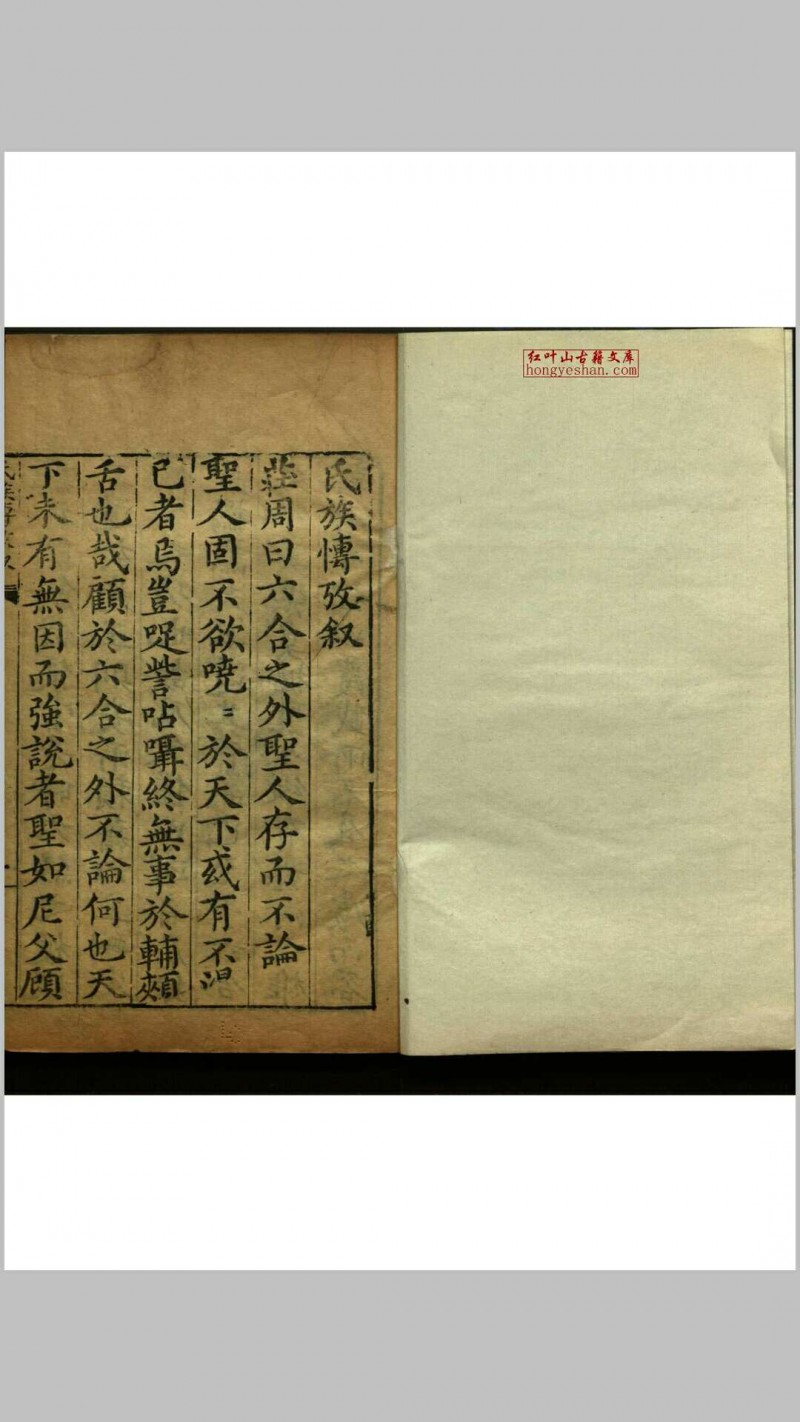 红叶山古籍文库
hongyeshan.com
氏族愽攷叙
莊周曰六合之外聖人存而不論
聖人固不欲嘵〻於天下或有不
已者焉豈哫訾呫囁終無事於輔頰
舌也哉顧於六合之外不論何也天
下未有無因而強說者聖如尼父顧